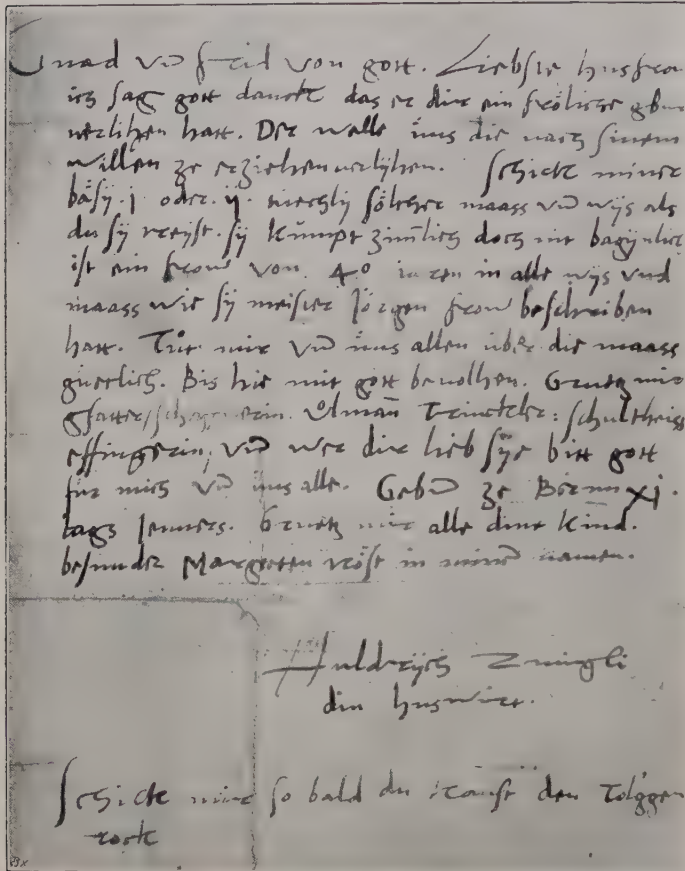 Gnad vnd frid von gott. Liebste husfrow
ich sag gott danck das er dir ein fröliche gburt
verlihen hatt. Der welle üns die nach sinem
willen ze erziehen verlyhen. Schick miner
bäsy .j. oder .ij. tüechly sölcher maass vnd wys als
du sy treyst. sy kumpt zimlich doch nit bagynlich
ist ein frow von 40 iaren in alle wys vnd
maass wie sy meister Jörgen frow beschriben
hatt. Tůt mir vnd üns allen über die maass
güetlich. Bis hie mit gott bevolhen. Gruetz mir
gfatter schaffnerin Ůlman Trinckler: schultheiss
effingerin, vnd wer dir lieb sye bitt gott
für mich vnd üns alle. Gebn ze Bernn xj.
tags Jenners. Gruetz mir alle dine kind.
besunder Margreten tröst in minem namen.
Huldrÿch Zwingli
din huswirt.
Schick mir so bald du kanst den Tolggen
rock